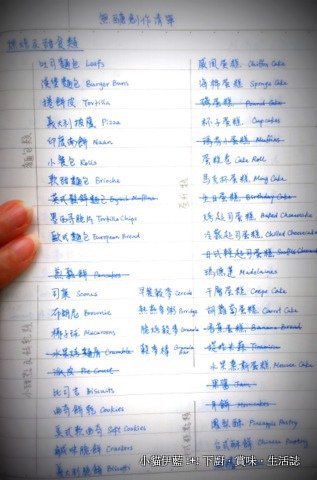 無麩創作清單
烘焙及甜食類
麵包類
吐司麵包 Loafs
漢堡麵包 Burger Buns
捲餅皮 Tortilla
義大利披薩 Pizza
印度南餅 Naan
小餐包 Rolls
軟甜麵包 Brioche
英式鬆餅麵包 English Muffins
墨西哥脆片 Tortilla Chips
歐式麵包 European Bread
美式鬆餅 Pancakes
司康 Scones
布朗尼 Brownie
椰子球 Macaroons
Crumble
派皮 Pie Crust
比司吉 Biscuits
曲奇餅乾 Cookies
美式軟曲奇 Soft Cookies
鹹味脆餅 Crackers
義大利脆餅 Biscotti
早餐穀片 Cereals
Porridge
脆烤穀麥 Granola
穀麥棒 Granola Bar
蛋糕類
戚風蛋糕 Chiffon Cake
海綿蛋糕 Sponge Cake
磅蛋糕 Pound Cake
杯子蛋糕 Cupcakes
瑪芬小蛋糕 Muffins
蛋糕卷 Cake Roll
馬克杯蛋糕 Mug Cake
生日蛋糕 Birthday Cake
烤起司蛋糕 Baked Cheesecake
冷藏起司蛋糕 Chilled Cheesecake
日式輕起司蛋糕 Souffle Cheesecake
瑪德蓮 Madeleines
千層蛋糕 Crepe Cake
胡蘿蔔蛋糕 Carrot Cake
香蕉蛋糕 Banana Bread
提拉米蘇 Tiramisu
水果慕斯蛋糕 Mousse Cake
果醬 Jam
月餅 Mooncakes
鳳梨酥 Pineapple Pastry
台式酥餅 Chinese Pastry
小貓伊藍 :+: 下廚‧賞味‧生活誌